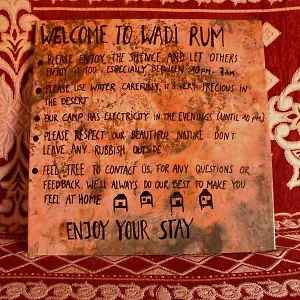 WELCOME TO WADI RUM
• PLEASE ENJOY THE SILENCE AND LET OTHERS
ENJOY IT TOO ESPECIALLY BETWEEN 10 PM - 7 AM
• PLEASE USE WATER CAREFULLY, IT'S VERY PRECIOUS IN
THE DESERT
• OUR CAMP HAS ELECTRICITY IN THE EVENINGS (UNTIL 10 PM)
• PLEASE RESPECT OUR BEAUTIFUL NATURE: DON'T
LEAVE ANY RUBBISH OUTSIDE
• FEEL FREE TO CONTACT US, FOR ANY QUESTIONS OR
FEEDBACK. WE'LL ALWAYS DO OUR BEST TO MAKE YOU
FEEL AT HOME
ENJOY YOUR STAY